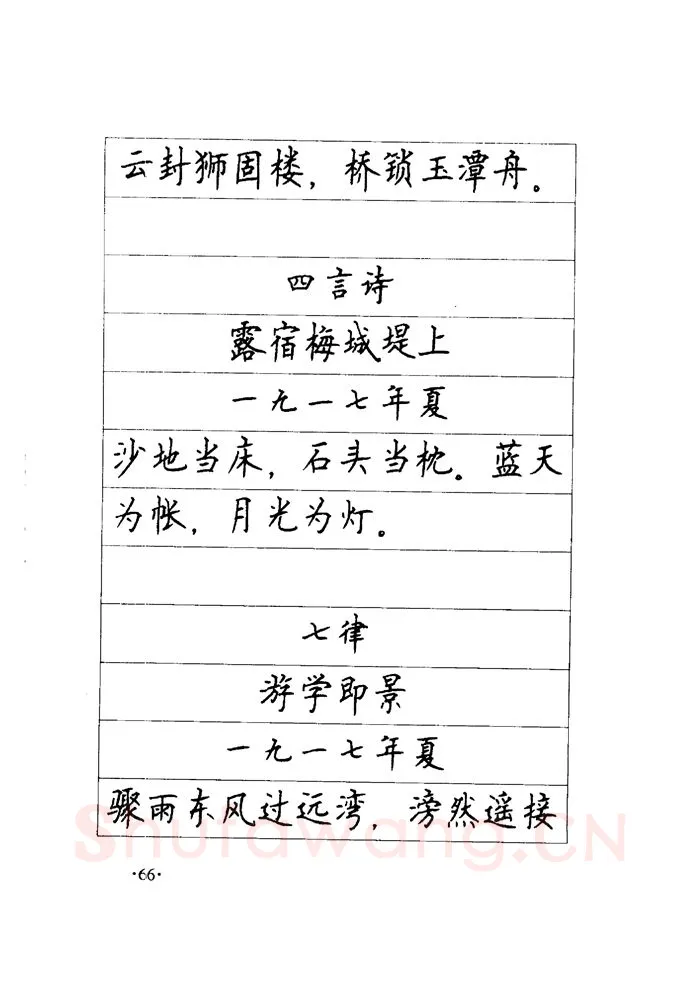 云封狮固楼，桥锁玉潭舟。
四言诗
露宿梅城堤上
一九一七年夏
沙地当床，石头当枕。蓝天
为帐，月光为灯。
七律
游学即景
一九一七年夏
骤雨东风过远湾，滂然遥接
Shufawang.CN
·66·